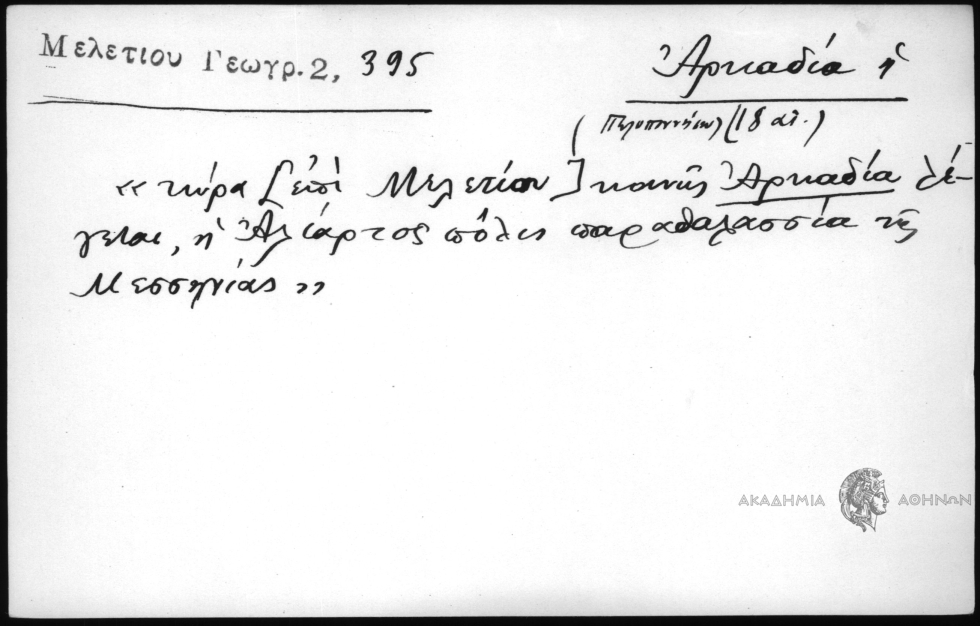 Μελετίου Γεωγρ. 2, 395
Ἀρκαδία ἡ
(Πελοποννήσου) (18 αἰ.)
«τώρα [ἐπὶ Μελετίου] κοινῶς Ἀρκαδία λέ-
γεται, ἡ Ἁλίαρτος πόλις παραθαλασσία τῆς
Μεσσηνίας»
ΑΚΑΔΗΜΙΑ ΑΘΗΝΩΝ